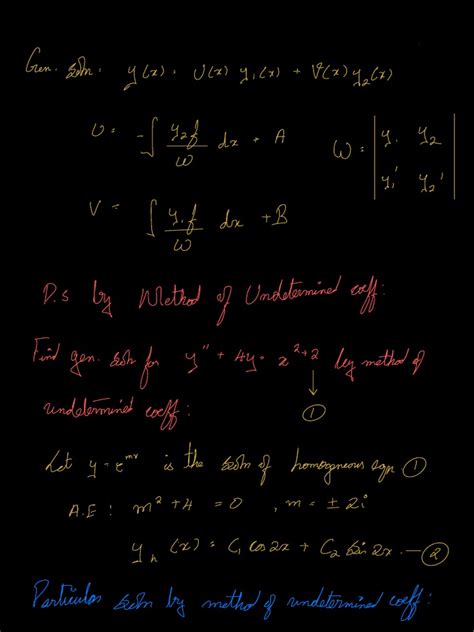 Gen. soln: y(x) = U(x) y₁(x) + V(x) y₂(x)
U = -∫ y₂f/W dx + A
W = | y₁ y₂ |
| y₁' y₂' |
V = ∫ y₁f/W dx + B
P.S by Method of Undetermined coeff:
Find gen. soln for y'' + 4y = x²+2 by method of
undetermined coeff: ①
Let y = eᵐˣ is the soln of homogneous eqn ①
A.E : m² + 4 = 0 , m = ± 2i
yₕ (x) = C₁ cos 2x + C₂ Sin 2x. — ②
Particular soln by method of undetermined coeff: